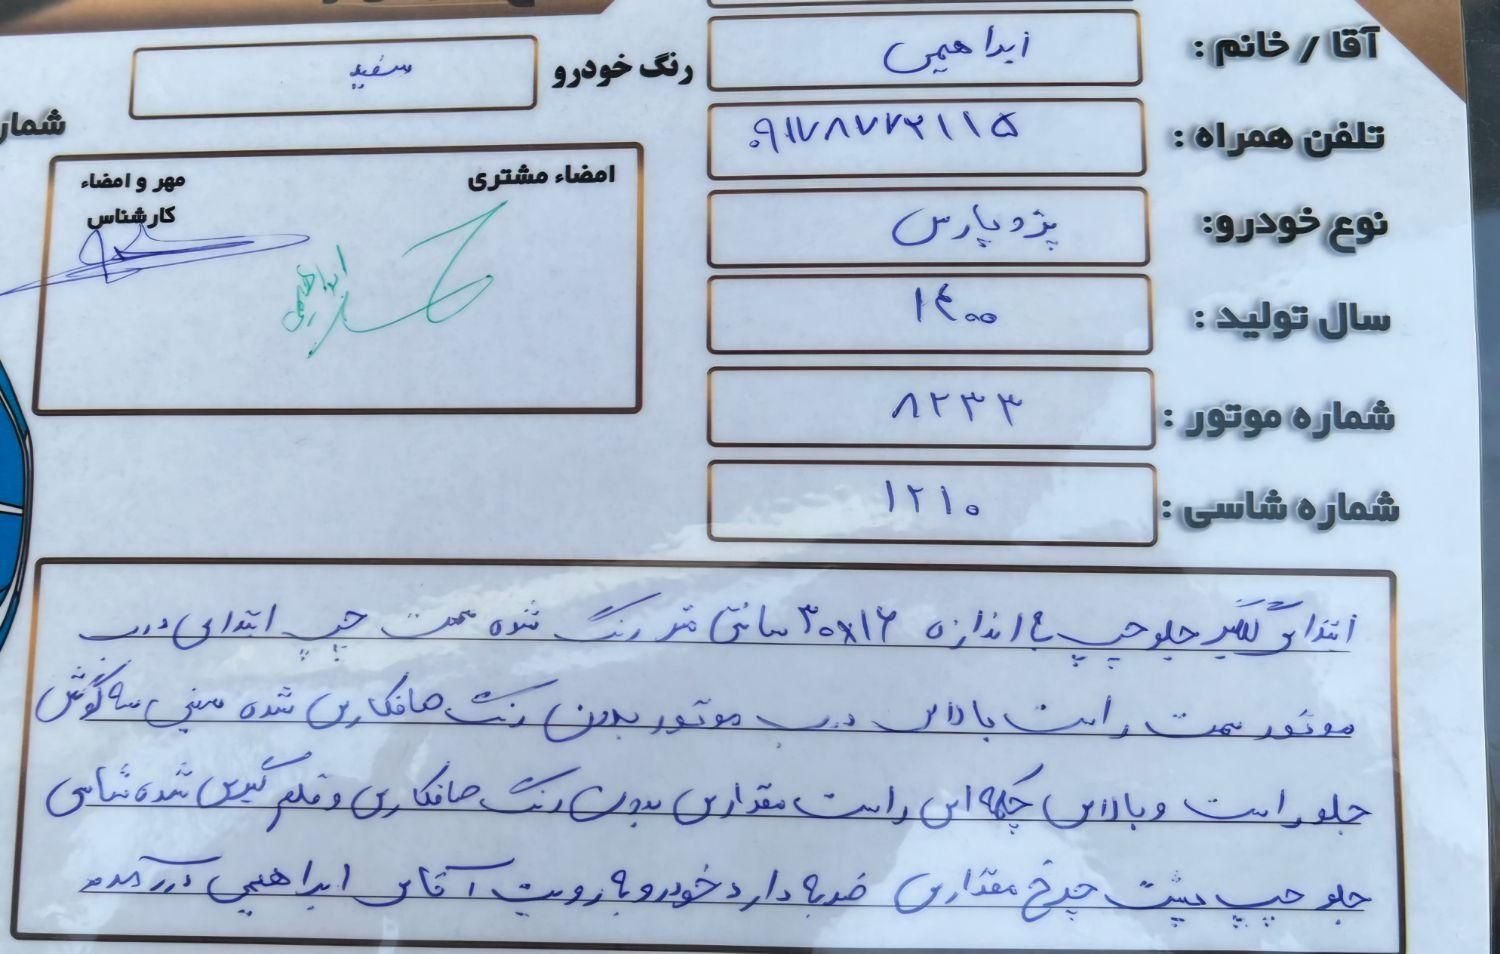 آقا / خانم : ابراهیمی
رنگ خودرو سفید
تلفن همراه : ۰۹۱۷۸۷۷۲۱۱۵
شمار
نوع خودرو: پژو پارس
امضاء مشتری
مهر و امضاء
کارشناس
ابراهیمی
سال تولید : ۱۴۰۰
شماره موتور : ۸۲۳۳
شماره شاسی : ۱۲۱۰
ابتدای گلگیر جلو چپ به اندازه ۳۰x۱۶ سانتی متر رنگ شده سمت چپ ابتدای درب
موتور سمت راست بالای درب موتور بدون رنگ صافکاری شده سینی سه گوش
جلو راست و بالای چکمه ای راست مقداری بدون رنگ صافکاری و قلم گیری شده شاسی
جلو چپ پشت چرخ مقداری ضربه دارد خودرو به رویت آقای ابراهیمی درآمده